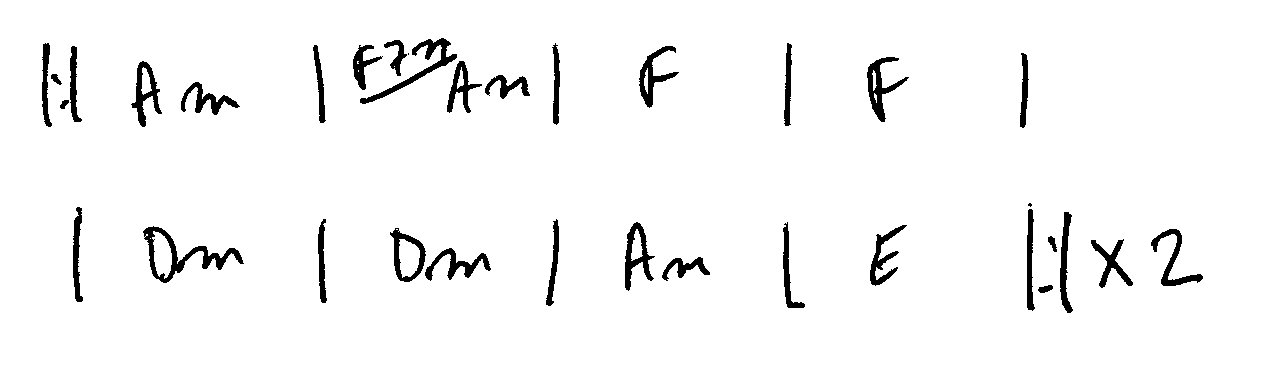 |:| Am | F7M Am | F | F |
| Dm | Dm | Am | E |:| x 2